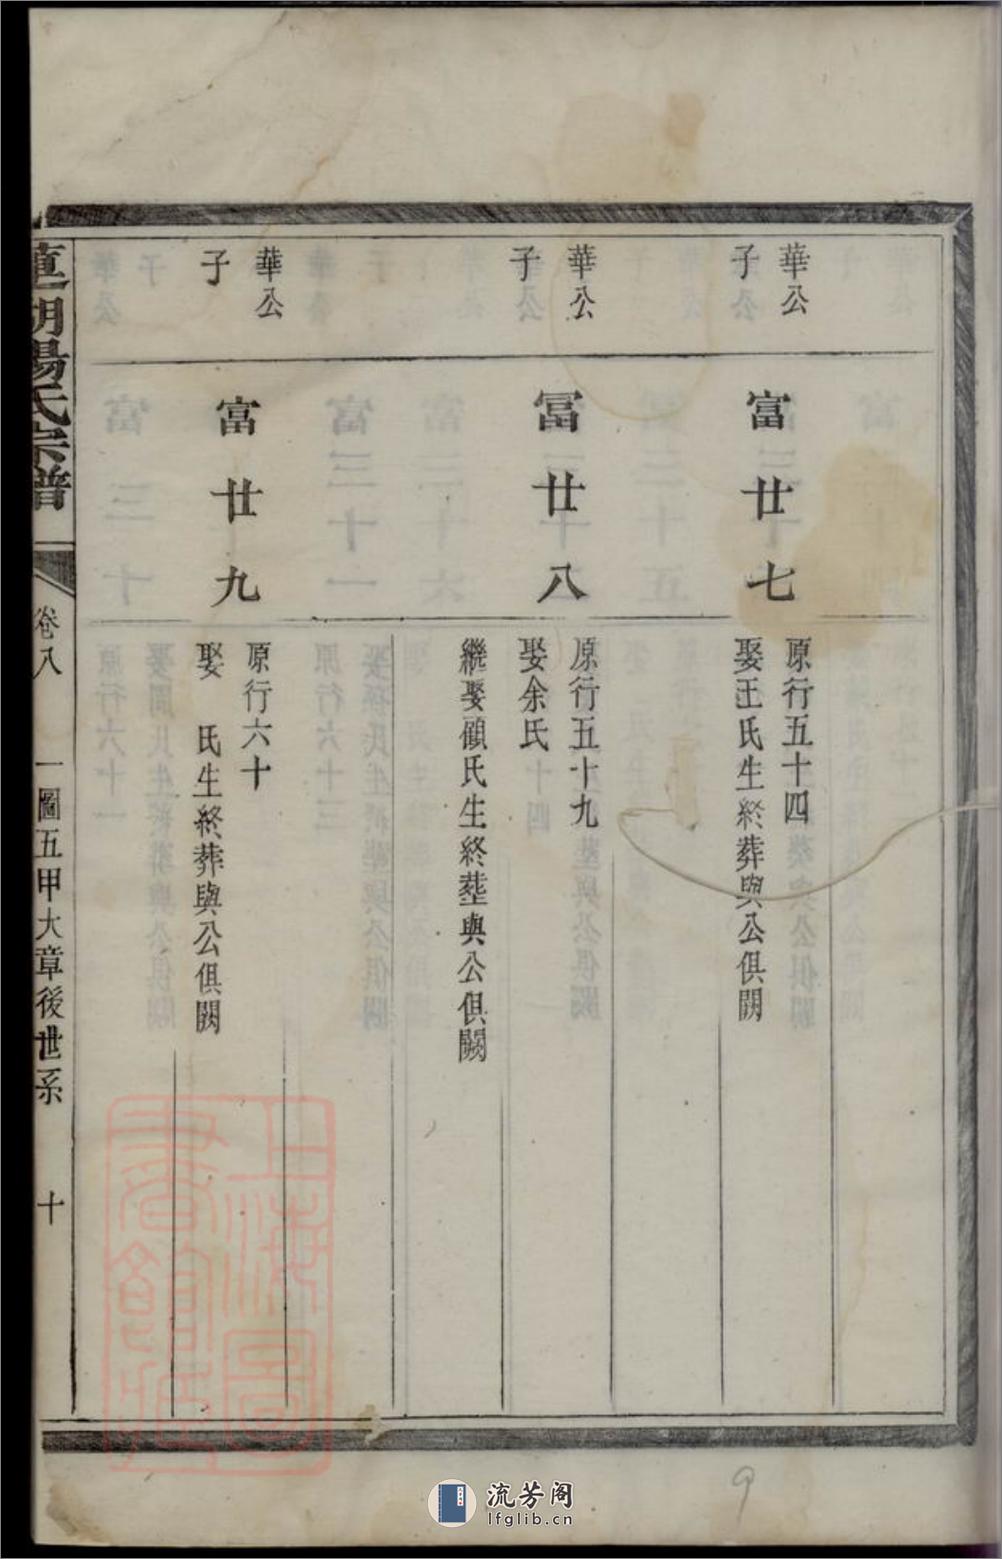 華公
子
富廿七
原行五十四
娶王氏生終葬與公俱闕
華公
子
冨廿八
原行五十九
娶余氏
繼娶顧氏生終塟與公俱闕
華公
子
富廿九
原行六十
娶 氏生終葬與公俱闕
湖楊氏宗譜
卷八
一圖五甲大章後世系
十
上海圖書館藏
9
流芳阁
lfglib.cn